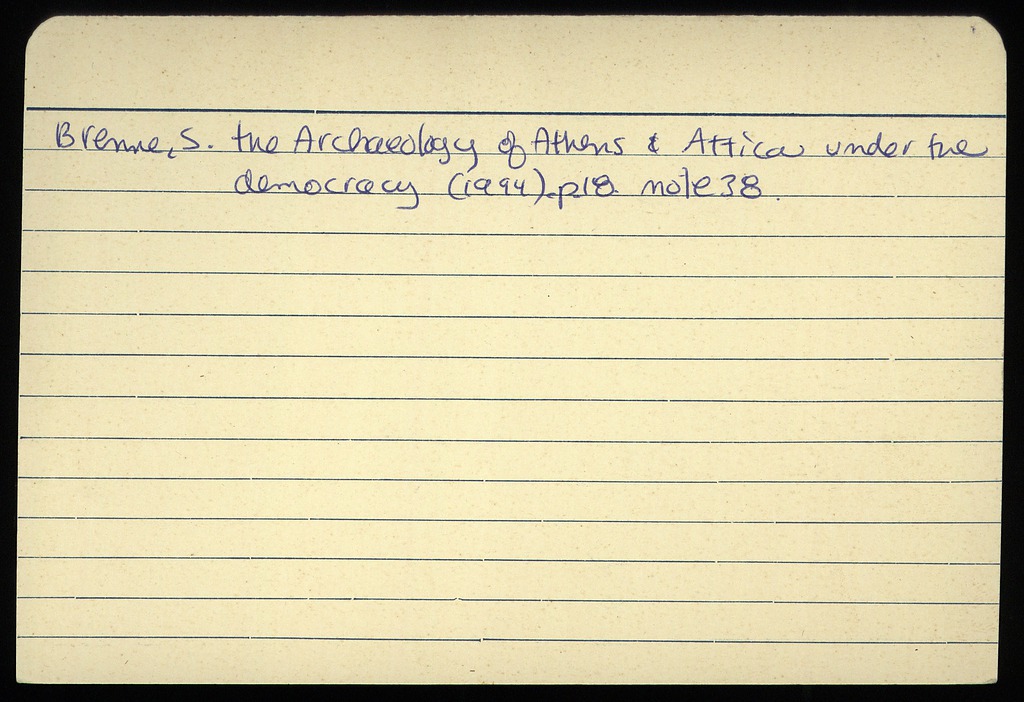 Brenne, S. the Archaeology of Athens & Attica under the
democracy (1994). p18 note 38.